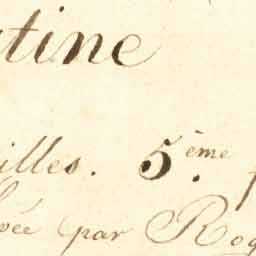 tine
illes. 5.ème
ée par Rog